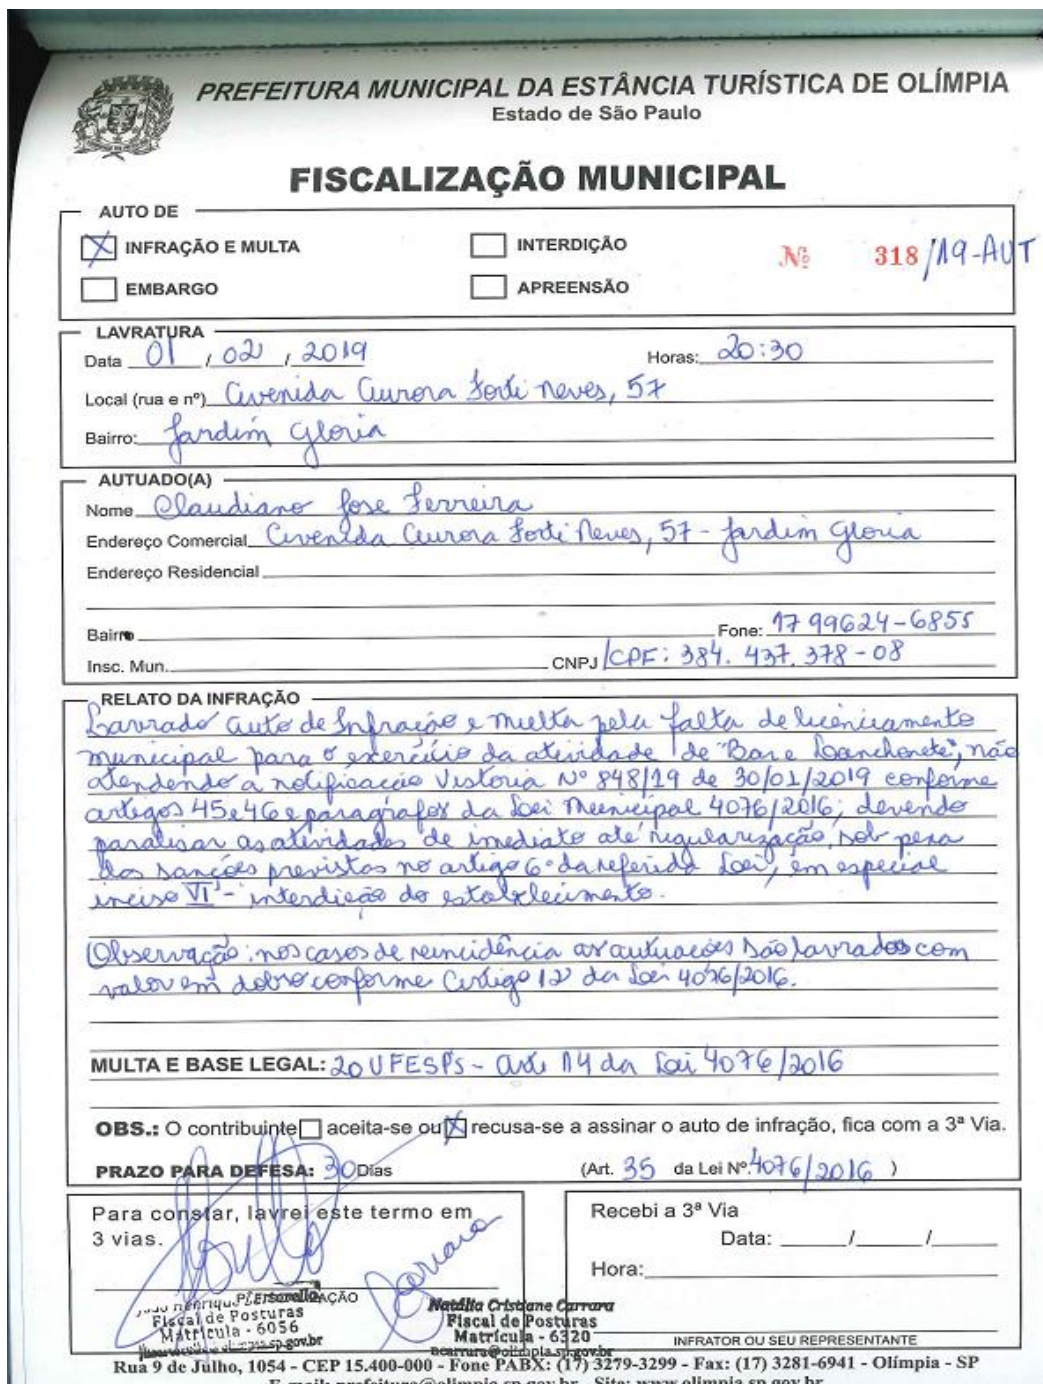 PREFEITURA MUNICIPAL DA ESTÂNCIA TURÍSTICA DE OLÍMPIA
Estado de São Paulo
FISCALIZAÇÃO MUNICIPAL
AUTO DE
INFRAÇÃO E MULTA INTERDIÇÃO Nº 318/19-AUT
EMBARGO APREENSÃO
LAVRATURA
Data 01 / 02 / 2019 Horas: 20:30
Local (rua e nº) Avenida Aurora Forti Neves, 57
Bairro: Jardim Gloria
AUTUADO(A)
Nome Claudiano Jose Ferreira
Endereço Comercial Avenida Aurora Forti Neves, 57 - Jardim Gloria
Endereço Residencial
Bairro Fone: 17 99624-6855
Insc. Mun. CNPJ /CPF: 384.437.378-08
RELATO DA INFRAÇÃO
Lavrado auto de Infração e multa pela falta de licenciamento
municipal para o exercício da atividade de "Bar e Lanchonete", não
atendendo a notificação Vistoria Nº 848/19 de 30/01/2019 conforme
artigos 45 e 46 e paragrafos da Lei Municipal 4076/2016; devendo
paralisar as atividades de imediato até regularização, sob pena
das sanções previstas no artigo 6º da referida Lei, em especial
inciso VI - interdição do estabelecimento.
Observação: nos casos de reincidência as autuações são lavradas com
valor em dobro conforme Artigo 12 da Lei 4076/2016.
MULTA E BASE LEGAL: 20 UFESP's - Art. 14 da Lei 4076/2016
OBS.: O contribuinte aceita-se ou recusa-se a assinar o auto de infração, fica com a 3ª Via.
PRAZO PARA DEFESA: 30 Dias (Art. 35 da Lei Nº 4076/2016 )
Para constar, lavrei este termo em
3 vias.
Recebi a 3ª Via
Data: ____/____/____
Hora:
Carrara
Fiscal de Posturas
Matrícula - 6056
Natália Cristiane Carrara
Fiscal de Posturas
Matrícula - 6320
ncarrara@olimpia.sp.gov.br
INFRATOR OU SEU REPRESENTANTE
Rua 9 de Julho, 1054 - CEP 15.400-000 - Fone PABX: (17) 3279-3299 - Fax: (17) 3281-6941 - Olímpia - SP
E-mail: prefeitura@olimpia.sp.gov.br - Site: www.olimpia.sp.gov.br